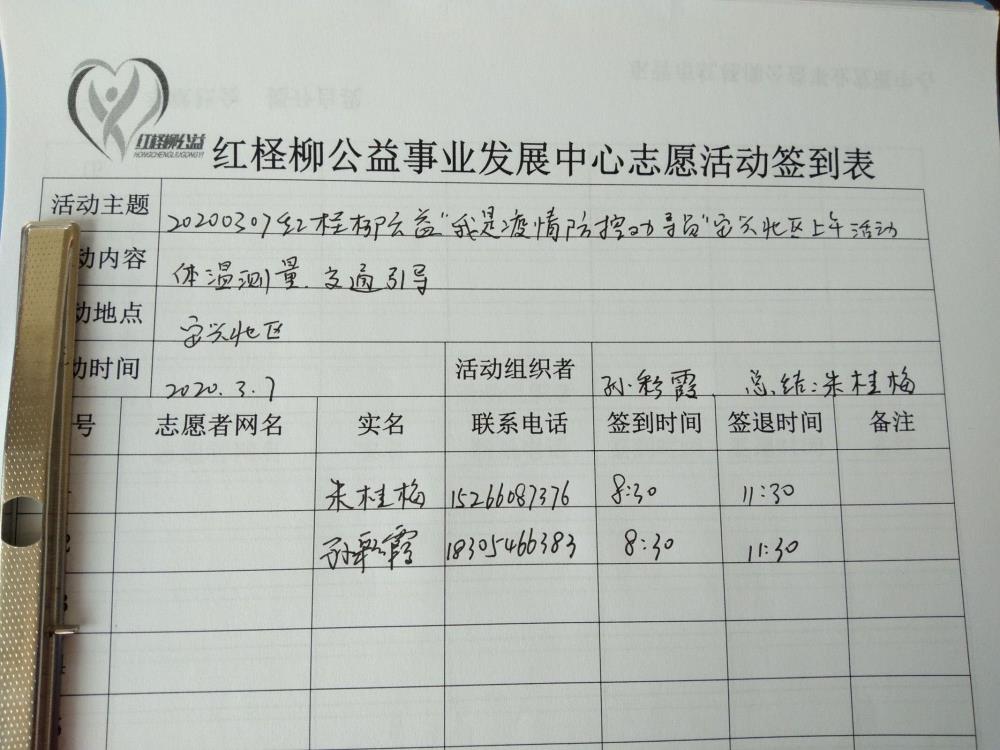 红柽柳公益
HONGCHENGLIUGONGYI
红柽柳公益事业发展中心志愿活动签到表
活动主题 20200307红柽柳公益"我是疫情防控劝导员"宝兴北区上午活动
动内容 体温测量、交通引导
动地点 宝兴北区
动时间 2020.3.7 活动组织者 孙彩霞 总结:朱桂梅
号 志愿者网名 实名 联系电话 签到时间 签退时间 备注
朱桂梅 15266087376 8:30 11:30
2 孙彩霞 18305466383 8:30 11:30
3
4
5